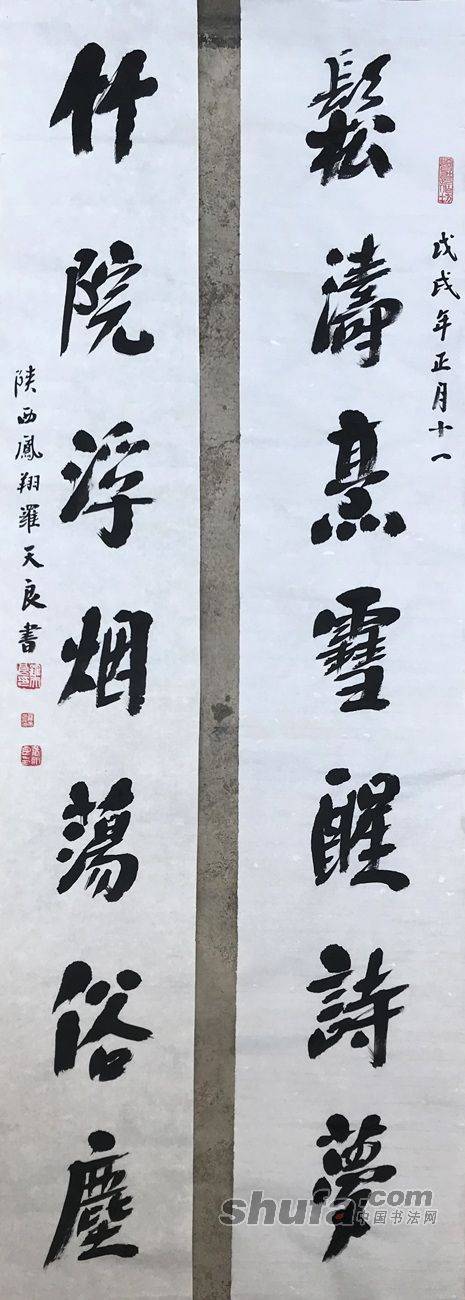 戊戌年正月十一
鬆濤烹雪醒詩夢
竹院浮烟蕩俗塵
陕西鳳翔羅天良書
shufa.com
中国书法网